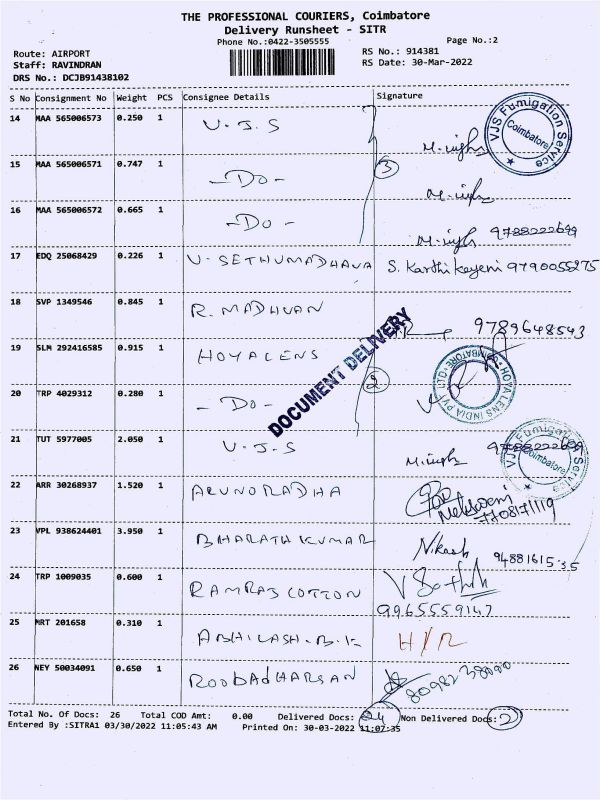 THE PROFESSIONAL COURIERS, Coimbatore
Delivery Runsheet - SITR
Phone No.:0422-3505555
Page No.:2
Route: AIRPORT
RS No.: 914381
Staff: RAVINDRAN
RS Date: 30-Mar-2022
DRS No.: DCJB91438102
S No Consignment No Weight PCS Consignee Details Signature
14 MAA 565006573 0.250 1 V.J.S
VJS Fumigation Service Coimbatore
15 MAA 565006571 0.747 1 -Do-
3
16 MAA 565006572 0.665 1 -Do- 9788222699
17 EDQ 25068429 0.226 1 V-SETHUMADHAVA S. Karthikeyeni 9790055275
18 SVP 1349546 0.845 1 R. MADHVAN 9789648543
DOCUMENT DELIVERY
19 SLM 292416585 0.915 1 HOYALENS
HOYA LENS INDIA PVT LTD COIMBATORE
2
20 TRP 4029312 0.280 1 -Do-
21 TUT 5977005 2.050 1 V.J.S
VJS Fumigation Service Coimbatore
22 ARR 30268937 1.520 1 ARUNORADHA
7708171119
23 VPL 938624401 3.950 1 BHARATHKUMAR Nikash 9488161535
24 TRP 1009035 0.600 1 RAMRAJ COTTON
9965559147
25 MRT 201658 0.310 1 ABHILASH.B.K H/R
26 NEY 50034091 0.650 1 ROOBADHARSAN
Total No. Of Docs: 26 Total COD Amt: 0.00 Delivered Docs: 24 Non Delivered Docs: 2
Entered By :SITRA1 03/30/2022 11:05:43 AM Printed On: 30-03-2022 11:07:35